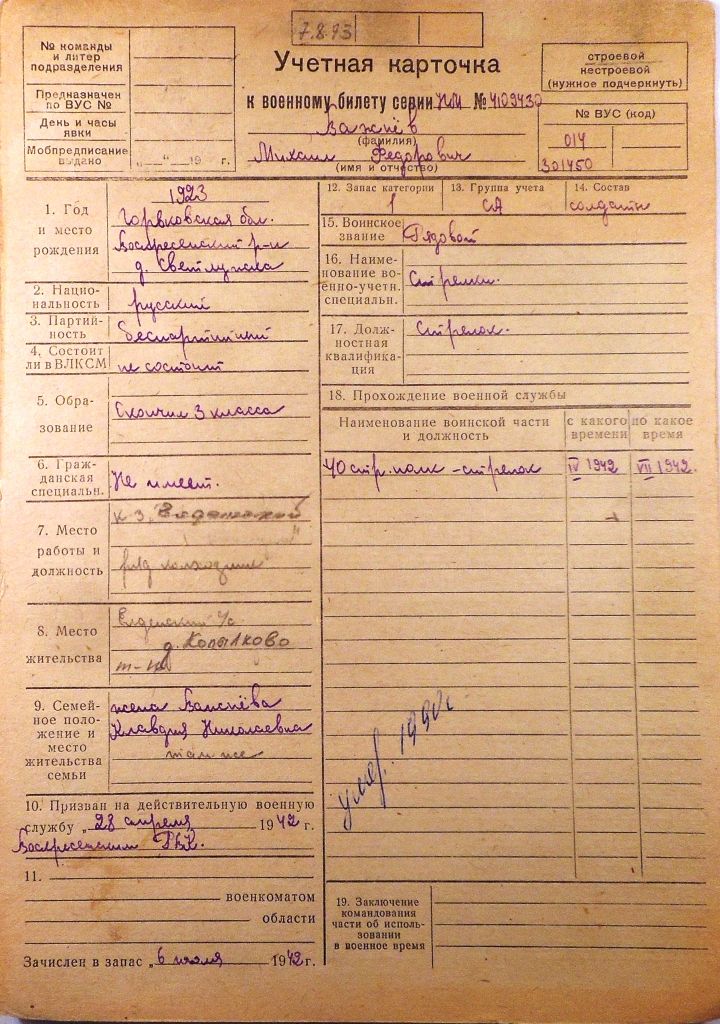 7.8.93
№ команды
и литер
подразделения
Предназначен
по ВУС №
День и часы
явки
Мобпредписание
выдано „ “ 19 г.
Учетная карточка
к военному билету серии НИ № 4109430
Важнёв
(фамилия)
Михаил Федорович
(имя и отчество)
строевой
нестроевой
(нужное подчеркнуть)
№ ВУС (код)
014
301450
1. Год
и место
рождения
1923
Горьковская обл.
Воскресенский р-н
д.
2. Национальность
русский
3. Партийность
беспартийный
4. Состоит
ли в ВЛКСМ
не состоит
5. Образование
Окончил 3 класса
6. Гражданская
специальн.
Не имеет.
7. Место
работы и
должность
к-з
колхозник
8. Место
жительства
д. Копылково
9. Семейное положение и
место
жительства
семьи
жена Важнёва
Клавдия Николаевна
там же
10. Призван на действительную военную
службу „28 апреля 1942 г.
Воскресенским РВК.
11.
военкоматом
области
Зачислен в запас „6 июля 1942 г.
12. Запас категории
1
13. Группа учета
СА
14. Состав
солдаты
15. Воинское
звание
Рядовой
16. Наименование военно-учетн.
специальн.
Стрелки.
17. Должностная
квалификация
Стрелок.
18. Прохождение военной службы
Наименование воинской части
и должность
с какого
времени
по какое
время
40 стр. полк - стрелок IV 1942 VII 1942.
умер. 1990г.
19. Заключение
командования
части об использовании
в военное время